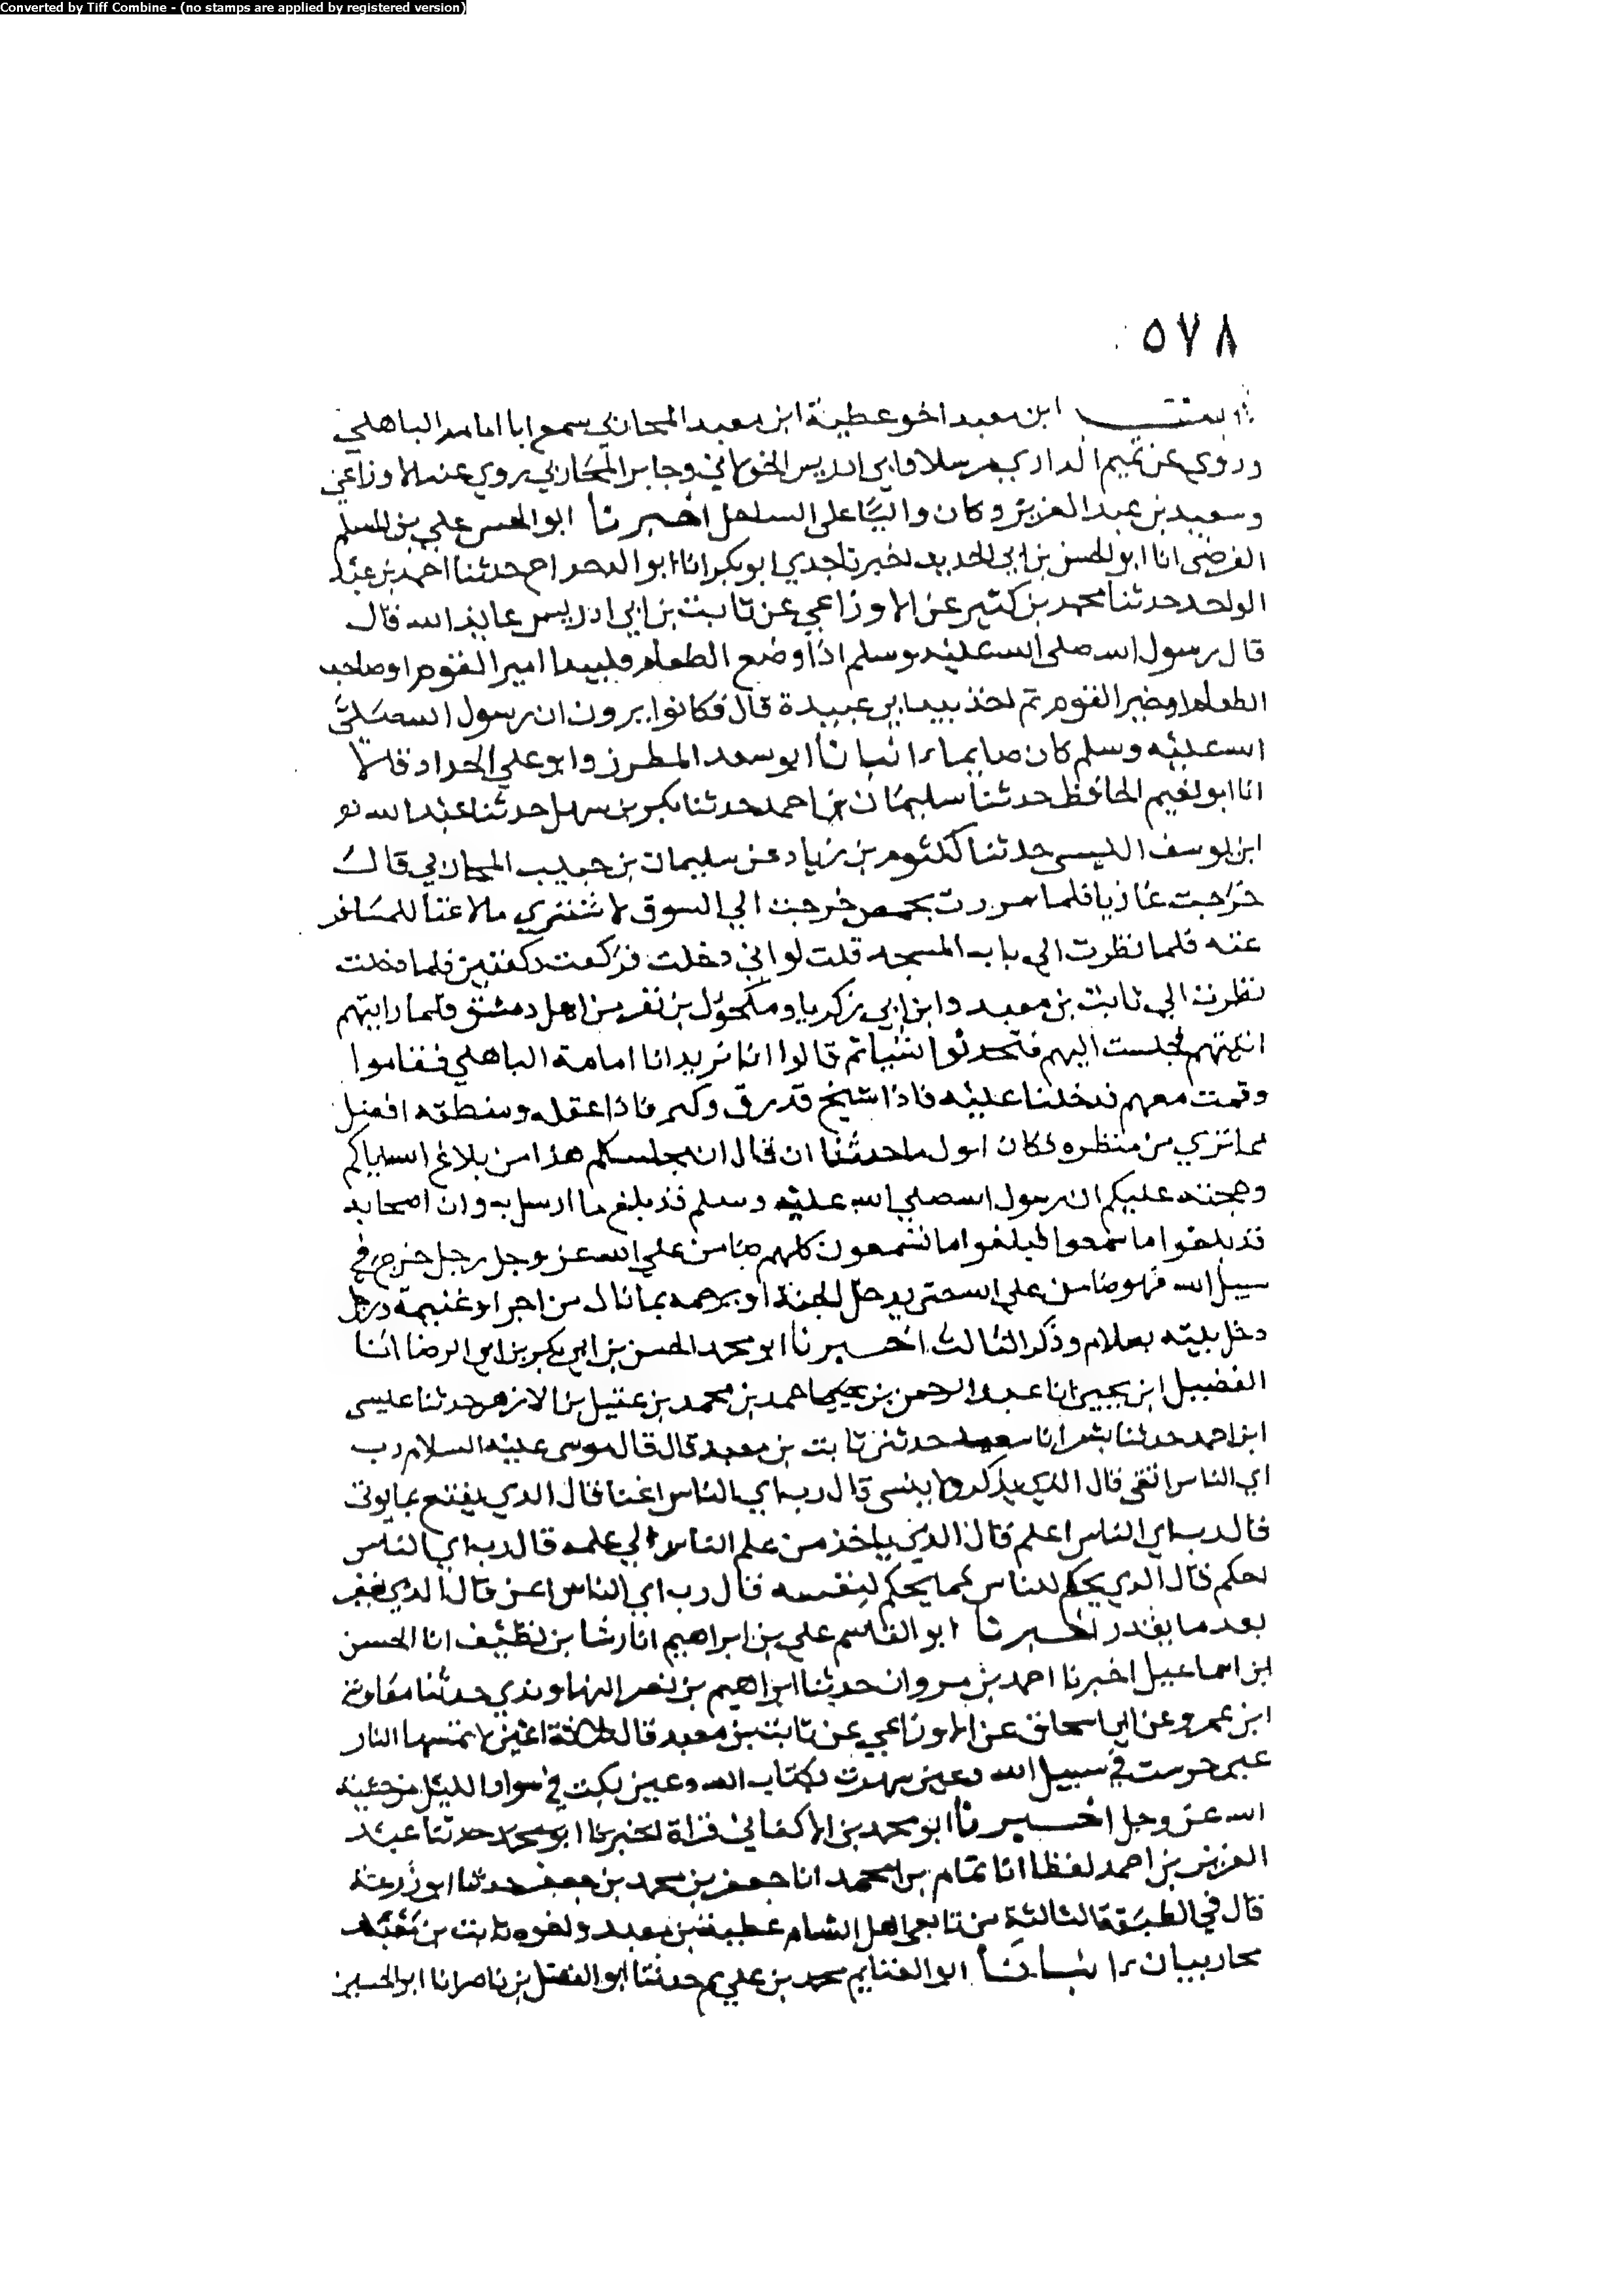 Converted by Tiff Combine - (no stamps are applied by registered version)
٥٧٨
ابن معبد اخو عطية ابن معبد المحاربي سمع ابا امامه الباهلي
وروي عن تميم الداري مرسلا وابي ادريس الخولاني وجابر المحاربي روي عنه الاوزاعي
وسعيد بن عبد العزيز وكان واليا على الساحل اخبرنا ابو الحسن علي بن المسلم
الفرضي انا ابو الحسن بن ابي الحديد اخبرنا جدي ابو بكر انا ابو الدحداح حدثنا احمد بن عبد
الواحد حدثنا محمد بن كثير عن الاوزاعي عن ثابت بن ابي ادريس عايذ الله قال
قال رسول الله صلى الله عليه وسلم اذا وضع الطعام فليبدا امير القوم او صاحب
الطعام او خير القوم ثم اخذ بيد ابي عبيدة قال فكانوا يرون ان رسول الله صلى
الله عليه وسلم كان صايما انبانا ابو سعد المطرز وابو علي الحداد قالا
انا ابو نعيم الحافظ حدثنا سليمان بن احمد حدثنا بكر بن سهل حدثنا عبد الله
ابن يوسف حدثنا كلثوم بن زياد عن سليمان بن حبيب المحاربي قال
خرجت غازيا فلما مررت بحمص خرجت الي السوق لاشتري مالا غنا للمسافر
عنه فلما نظرت الى باب المسجد قلت لو اني دخلت فركعت ركعتين فلما دخلت
نظرت الي ثابت بن معبد وابن ابي زكريا ومكحول بن نفر من اهل دمشق فلما رايتهم
اتيتهم فجلست اليهم فتحدثوا شيا ثم قالوا انا نريد ابا امامة الباهلي فقاموا
وقمت معهم فدخلنا عليه فاذا شيخ قد رق وكبر فاذا عقله ومنطقه افضل
مما نري من منظره فكان اول ما حدثنا ان قال ان مجلسكم هذا من بلاغ الله اياكم
وحجته عليكم ان رسول الله صلي الله عليه وسلم قد بلغ ما ارسل به وان اصحابه
قد بلغوا ما سمعوا فبلغوا ما تسمعون كلهم ضامن علي الله عز وجل رجل خرج في
سبيل الله فهو ضامن علي الله حتى يدخل الجنة او يرجعه بما نال من اجر او غنيمة ورجل
دخل بيته بسلام وذكر الثالث اخبرنا ابو محمد الحسن بن ابي بكر بن ابي الرضا انا
الفضيل ابن يحيى انا عبد الرحمن بن يحيى احمد بن محمد بن عقيل بن الازهر حدثنا عيسى
ابن احمد حدثنا بشر انا سعيد حدثني ثابت بن معبد قال قال موسى عليه السلام رب
اي الناس اتقى قال الذي يذكر ولا ينسى قال رب اي الناس اغنا قال الذي يقنع بما يوتى
قال رب اي الناس اعلم قال الذي ياخذ من علم الناس الي علمه قال رب اي الناس
احكم قال الذي يحكم للناس كما يحكم لنفسه قال رب اي الناس اعز قال الذي يغفر
بعد ما يقدر اخبرنا ابو القاسم علي بن ابراهيم انا رشا بن نظيف انا الحسن
ابن اسماعيل اخبرنا احمد بن مروان حدثنا ابراهيم بن نصر النهاوندي حدثنا معاوية
ابن عمرو عن ابي اسحاق عن الاوزاعي عن ثابت بن معبد قال ثلاثة اعين لا تمسها النار
عين حرست في سبيل الله وعين سهرت بكتاب الله وعين بكت في سواد الليل من خشية
الله عز وجل اخبرنا ابو محمد بن الاكفاني قراة اخبرنا ابو محمد حدثنا عبد
العزيز بن احمد لفظا انا تمام بن محمد انا جعفر بن محمد بن جعفر حدثنا ابو زرعة
قال في الطبقة الثالثة من تابعي اهل الشام عطية بن معبد واخوه ثابت بن معبد
محاربيان انبانا ابو الغنايم محمد بن علي ثم حدثنا ابو الفضل بن ناصر انا ابو الحسين